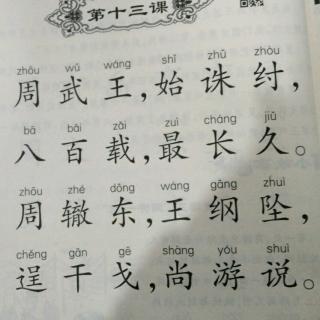 第十三课
zhōu wǔ wáng shǐ zhū zhòu
周武王,始诛纣,
bā bǎi zǎi zuì cháng jiǔ
八百载,最长久。
zhōu zhé dōng wáng gāng zhuì
周辙东,王纲坠,
chěng gān gē shàng yóu shuì
逞干戈,尚游说。